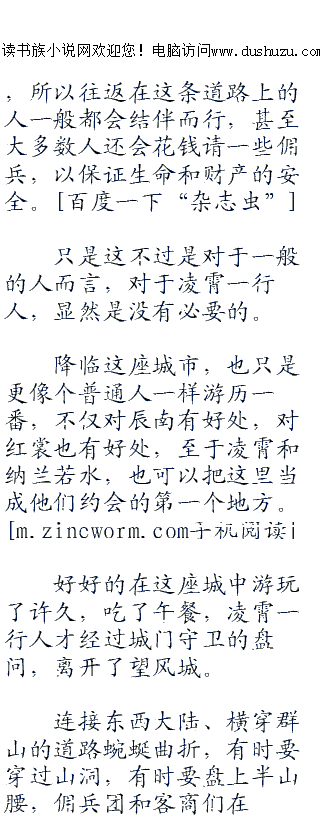 读书族小说网欢迎您！电脑访问www.dushuzu.com
，所以往返在这条道路上的
人一般都会结伴而行，甚至
大多数人还会花钱请一些佣
兵，以保证生命和财产的安
全。[百度一下“杂志虫”]
只是这不过是对于一般
的人而言，对于凌霄一行
人，显然是没有必要的。
降临这座城市，也只是
更像个普通人一样游历一
番，不仅对辰南有好处，对
红裳也有好处，至于凌霄和
纳兰若水，也可以把这里当
成他们约会的第一个地方。
[m.zincworm.com手机阅读]
好好的在这座城中游玩
了许久，吃了午餐，凌霄一
行人才经过城门守卫的盘
问，离开了望风城。
连接东西大陆、横穿群
山的道路蜿蜒曲折，有时要
穿过山洞，有时要盘上半山
腰，佣兵团和客商们在